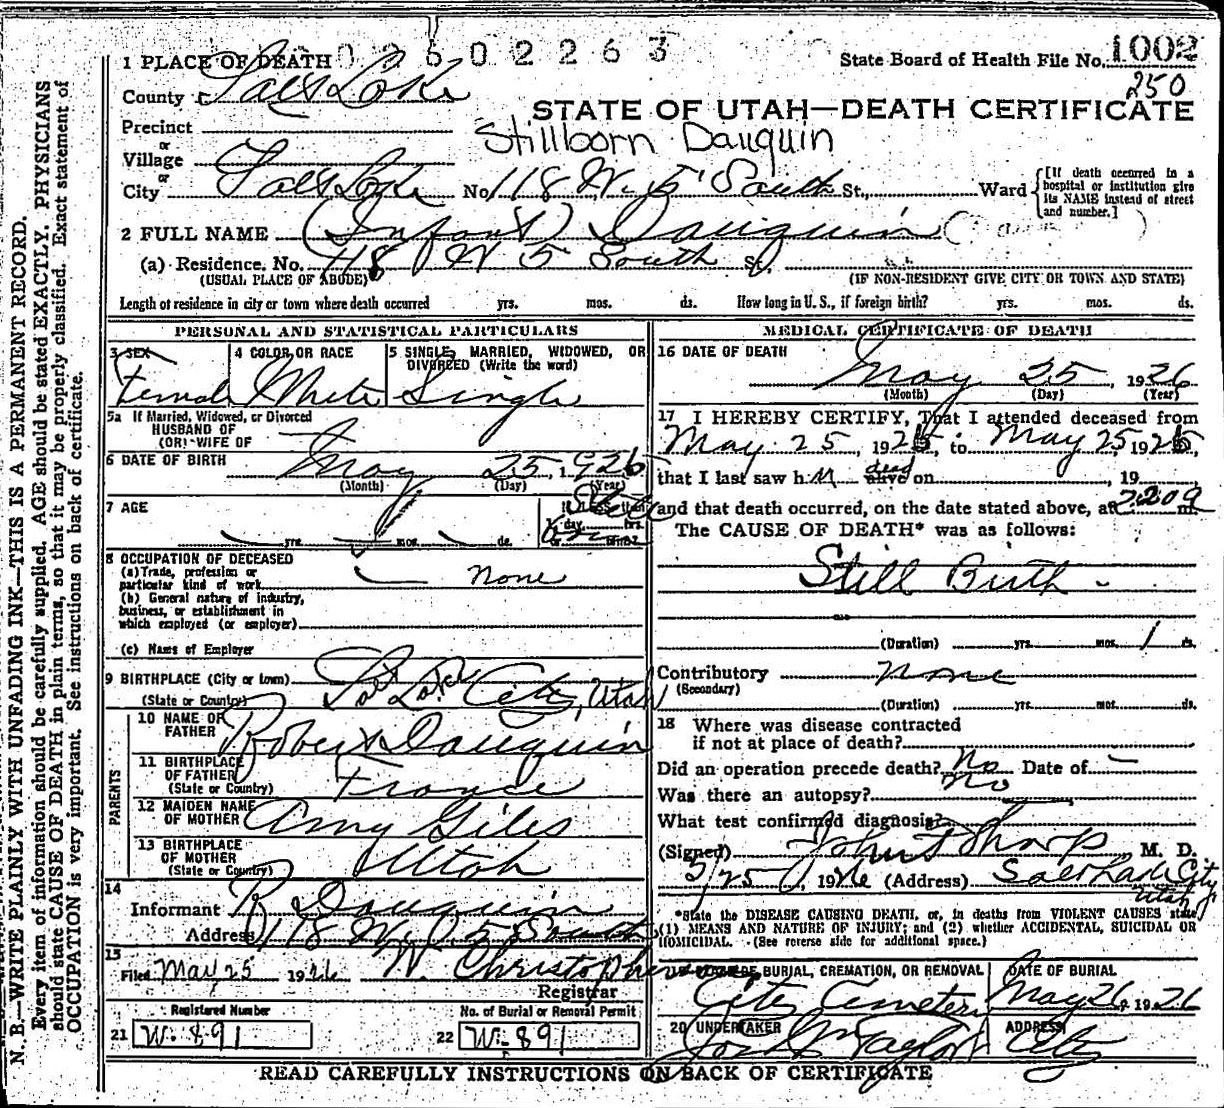 02602263
1 PLACE OF DEATH
State Board of Health File No. 1002
250
County Salt Lake
STATE OF UTAH—DEATH CERTIFICATE
Precinct
Stillborn Dauquin
or
Village
or
City Salt Lake No. 118 W. 5 South St., Ward
[If death occurred in a hospital or institution give its NAME instead of street and number.]
2 FULL NAME (Infant) Dauquin
(a) Residence. No. 118 W 5 South St.
(USUAL PLACE OF ABODE) (IF NON-RESIDENT GIVE CITY OR TOWN AND STATE)
Length of residence in city or town where death occurred yrs. mos. ds. How long in U. S., if foreign birth? yrs. mos. ds.
PERSONAL AND STATISTICAL PARTICULARS
3 SEX 4 COLOR OR RACE 5 SINGLE, MARRIED, WIDOWED, OR
DIVORCED (Write the word)
Female White Single
5a If Married, Widowed, or Divorced
HUSBAND OF
(OR) WIFE OF
6 DATE OF BIRTH May 25, 1926
(Month) (Day) (Year)
7 AGE
yrs. mos. ds.
8 OCCUPATION OF DECEASED
(a) Trade, profession or
particular kind of work none
(b) General nature of industry,
business, or establishment in
which employed (or employer)
(c) Name of Employer
9 BIRTHPLACE (City or town) Salt Lake City, Utah
(State or Country)
PARENTS
10 NAME OF
FATHER Robert Dauquin
11 BIRTHPLACE
OF FATHER
(State or Country) France
12 MAIDEN NAME
OF MOTHER Amy Giles
13 BIRTHPLACE
OF MOTHER
(State or Country) Utah
14
Informant R Dauquin
Address 118 W. 5 South
15
Filed May 25 1926 W. Christopherson
Registrar
Registered Number No. of Burial or Removal Permit
21 W-891 22 W-891
MEDICAL CERTIFICATE OF DEATH
16 DATE OF DEATH
May 25, 1926
(Month) (Day) (Year)
17 I HEREBY CERTIFY, That I attended deceased from
May 25, 1926, to May 25, 1926,
that I last saw h alive dead on , 19
and that death occurred, on the date stated above, at m.
The CAUSE OF DEATH* was as follows:
Still Birth -
(Duration) yrs. mos. 1 ds.
Contributory none
(Secondary)
(Duration) yrs. mos. ds.
18 Where was disease contracted
if not at place of death?
Did an operation precede death? No Date of —
Was there an autopsy? no
What test confirmed diagnosis?
(Signed) John F Sharp M. D.
5/25, 1926 (Address) Salt Lake City
Utah
*State the DISEASE CAUSING DEATH, or, in deaths from VIOLENT CAUSES state
(1) MEANS AND NATURE OF INJURY; and (2) whether ACCIDENTAL, SUICIDAL OR
HOMICIDAL. (See reverse side for additional space.)
BURIAL, CREMATION, OR REMOVAL DATE OF BURIAL
City Cemetery May 26, 1926
20 UNDERTAKER ADDRESS
Taylor City
READ CAREFULLY INSTRUCTIONS ON BACK OF CERTIFICATE
N. B.—WRITE PLAINLY WITH UNFADING INK—THIS IS A PERMANENT RECORD.
Every item of information should be carefully supplied. AGE should be stated EXACTLY. PHYSICIANS
should state CAUSE OF DEATH in plain terms, so that it may be properly classified. Exact statement of
OCCUPATION is very important. See instructions on back of certificate.